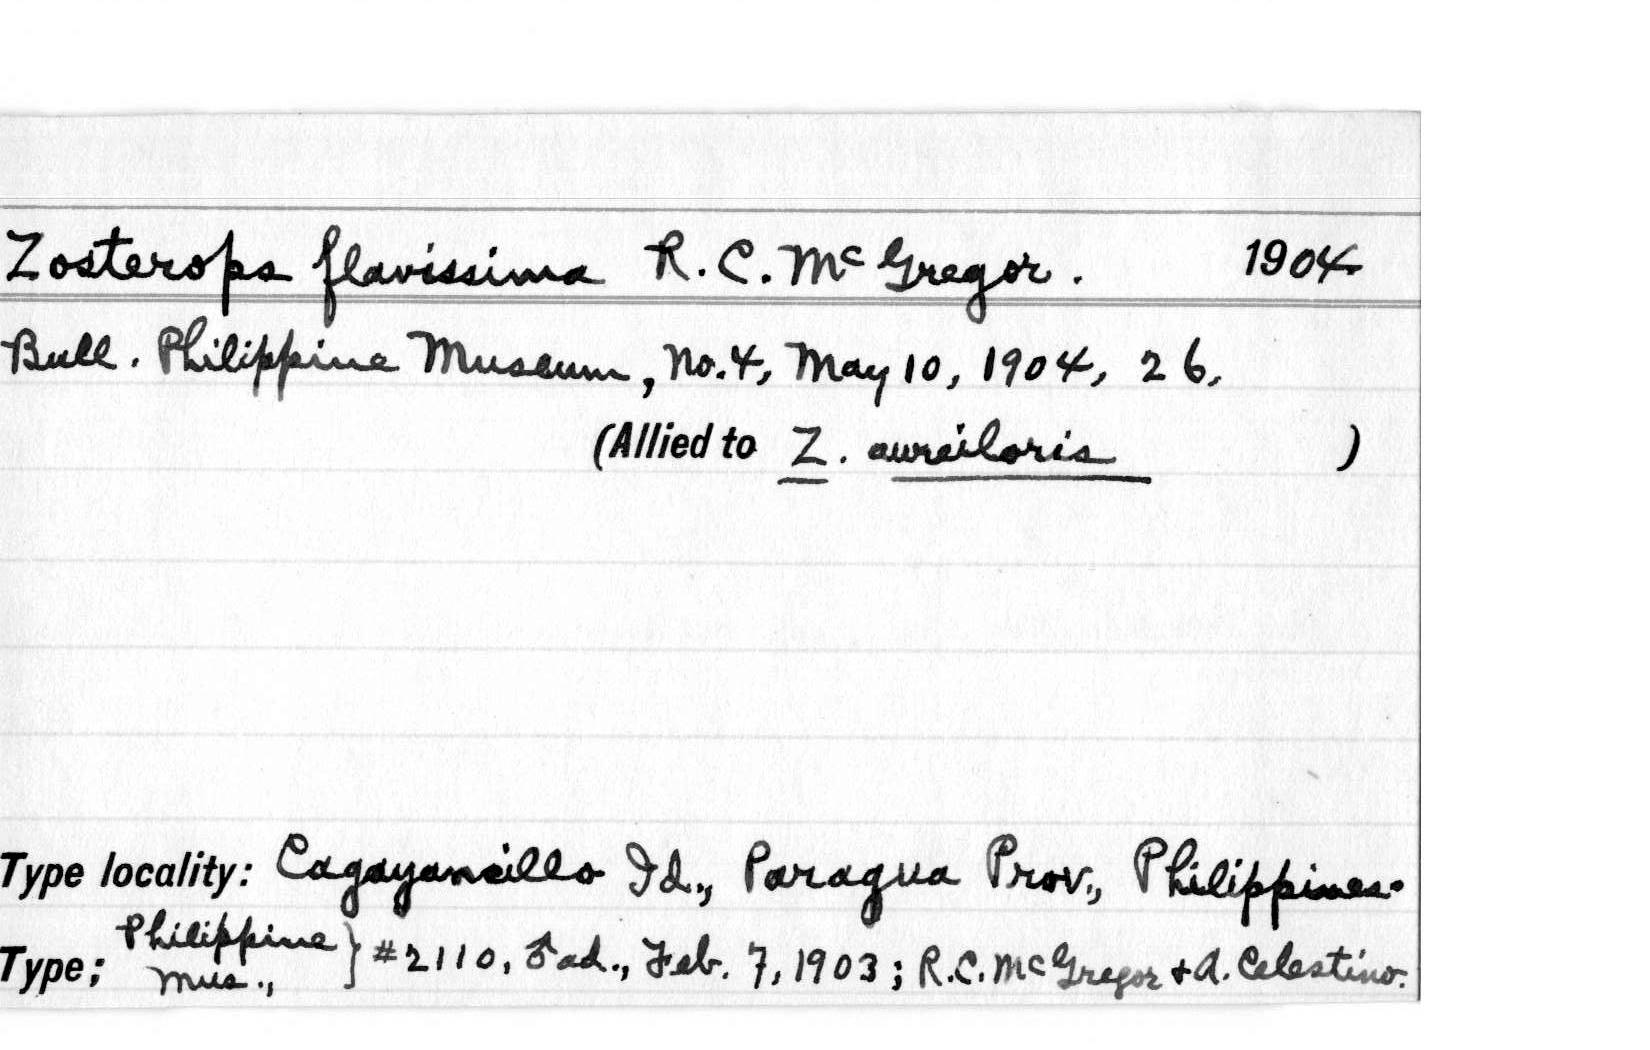 Zosterops flavissima R. C. McGregor. 1904
Bull. Philippine Museum, No. 4, May 10, 1904, 26.
(Allied to Z. aureiloris )
Type locality: Cagayancillo Id., Paragua Prov., Philippines.
Type; Philippine Mus., } #2110, ♂ ad., Feb. 7, 1903; R.C. McGregor + A. Celestino.